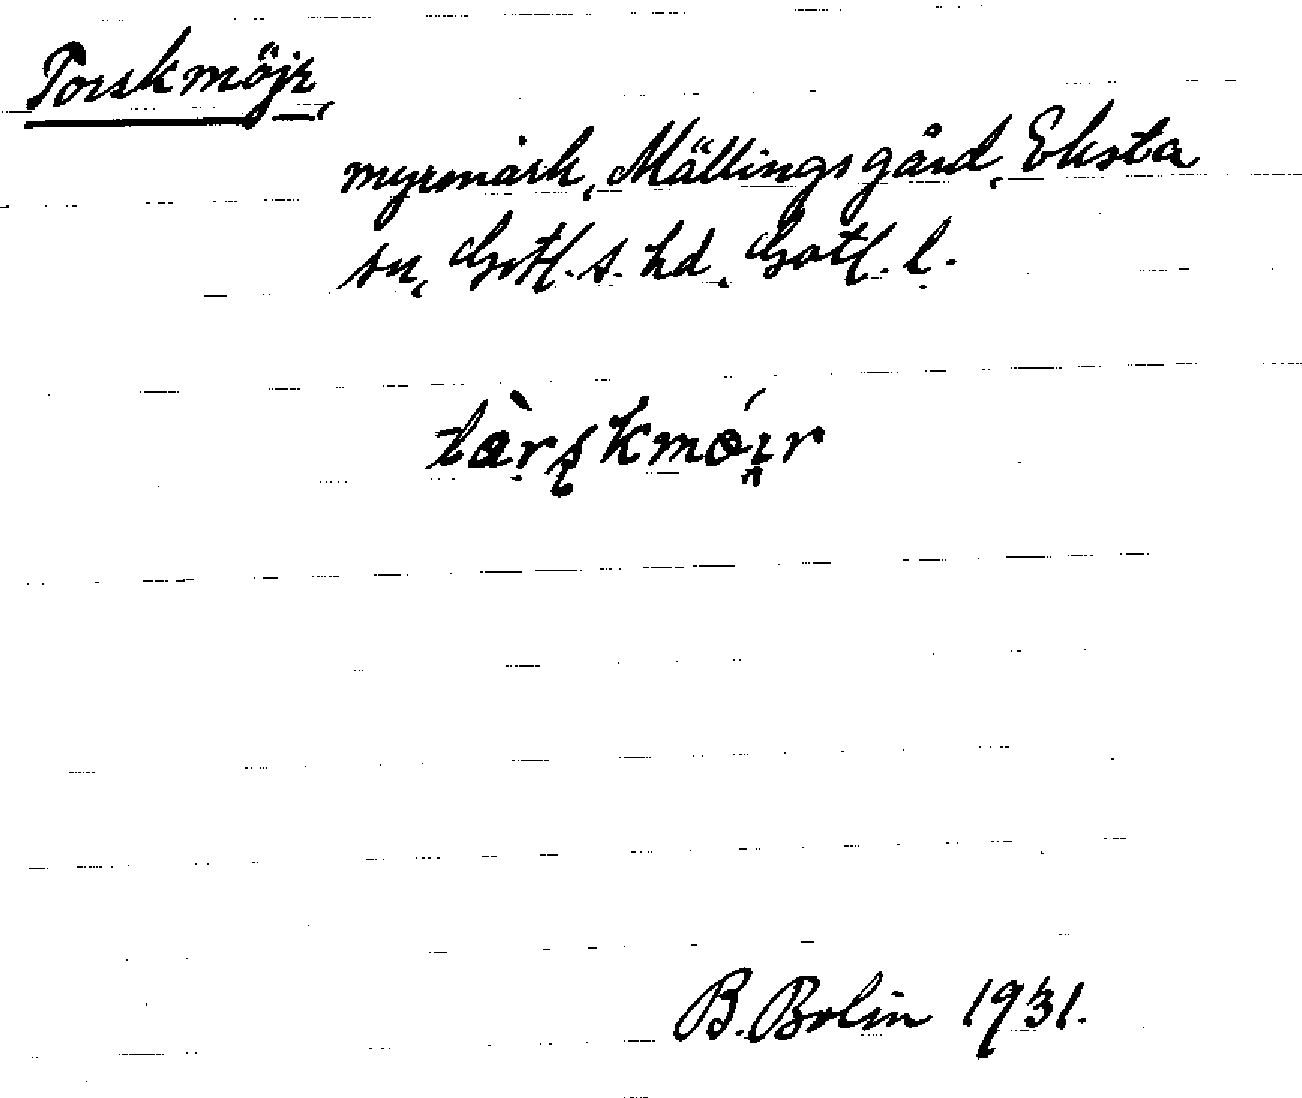 Torskmöjr,
myrmark, Mällingsgård, Eksta
sn, Gotl. s. hd, Gotl. l.
tàrskmóir
B. Bolin 1931.